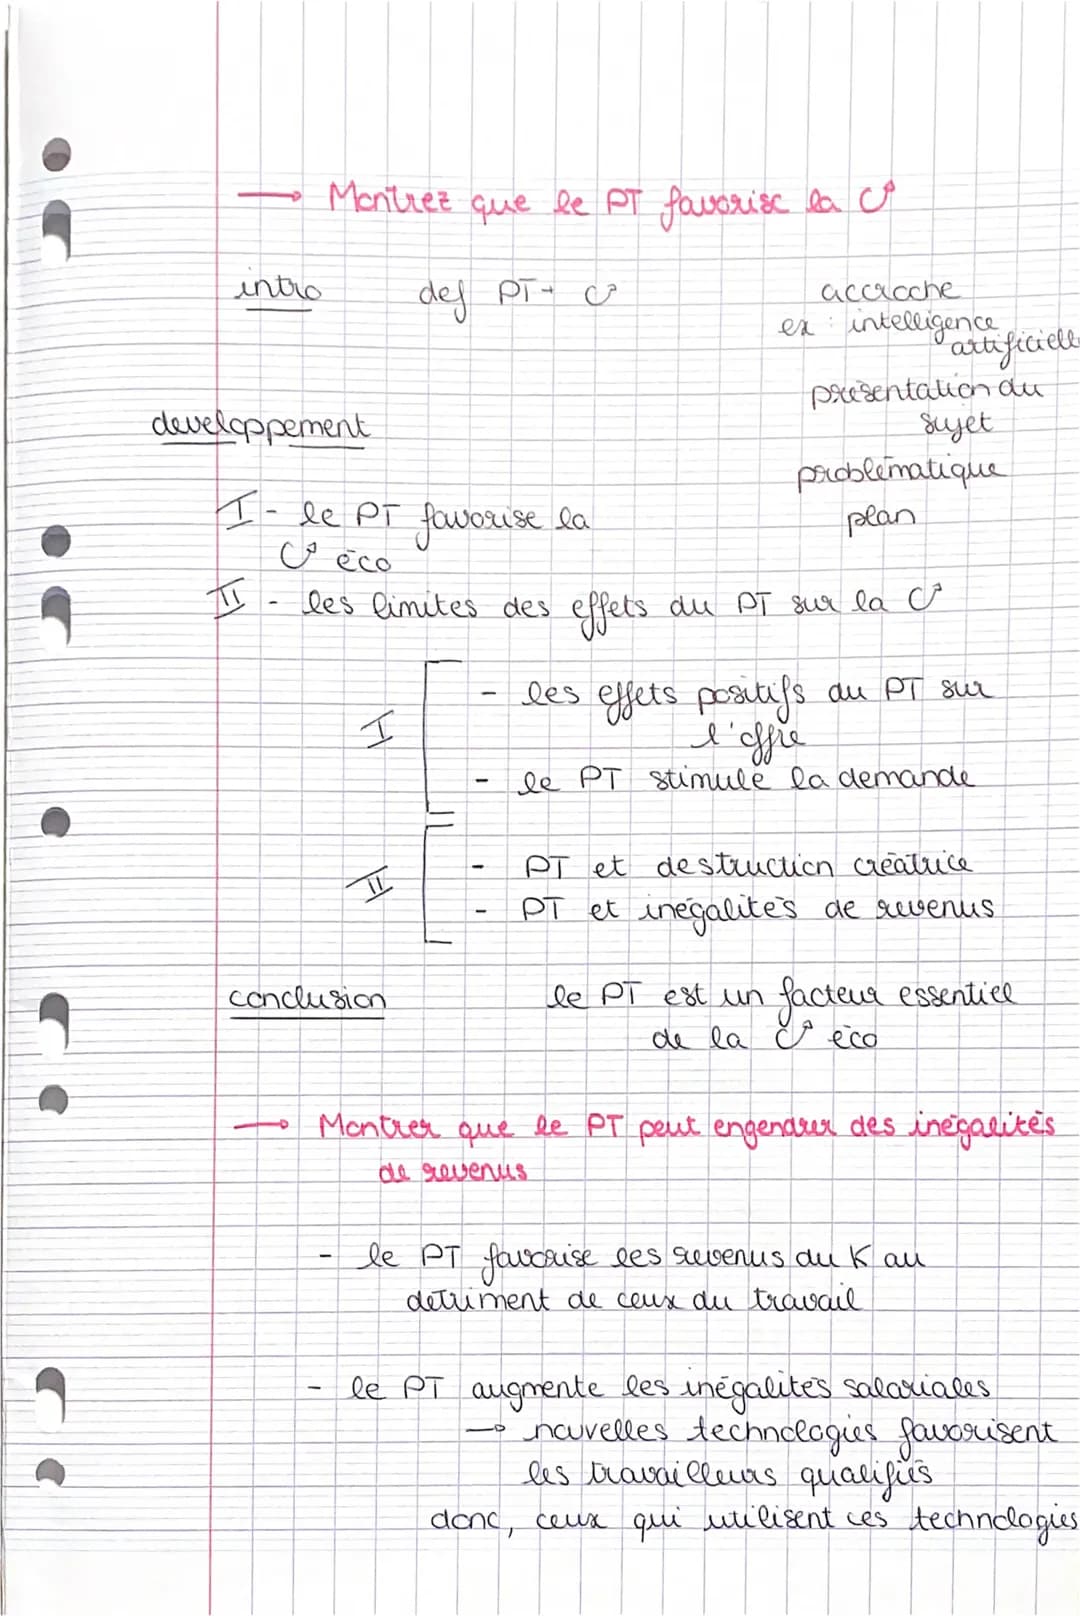 → Montrez que le PT favorise la C°
intro def PT + C° accroche
ex : intelligence
artificielle
présentation du
sujet
developpement
problématique
I - le PT favorise la plan
C° éco
II - les limites des effets du PT sur la C°
- les effets positifs du PT sur
I l'offre
- le PT stimule la demande
- PT et destruction créatrice
II
- PT et inégalités de revenus
conclusion le PT est un facteur essentiel
de la C° éco
→ Montrer que le PT peut engendrer des inégalités
de revenus
- le PT favorise les revenus du K au
detriment de ceux du travail
- le PT augmente les inégalités salariales
→ nouvelles technologies favorisent
les travailleurs qualifiés
donc, ceux qui utilisent ces technologies